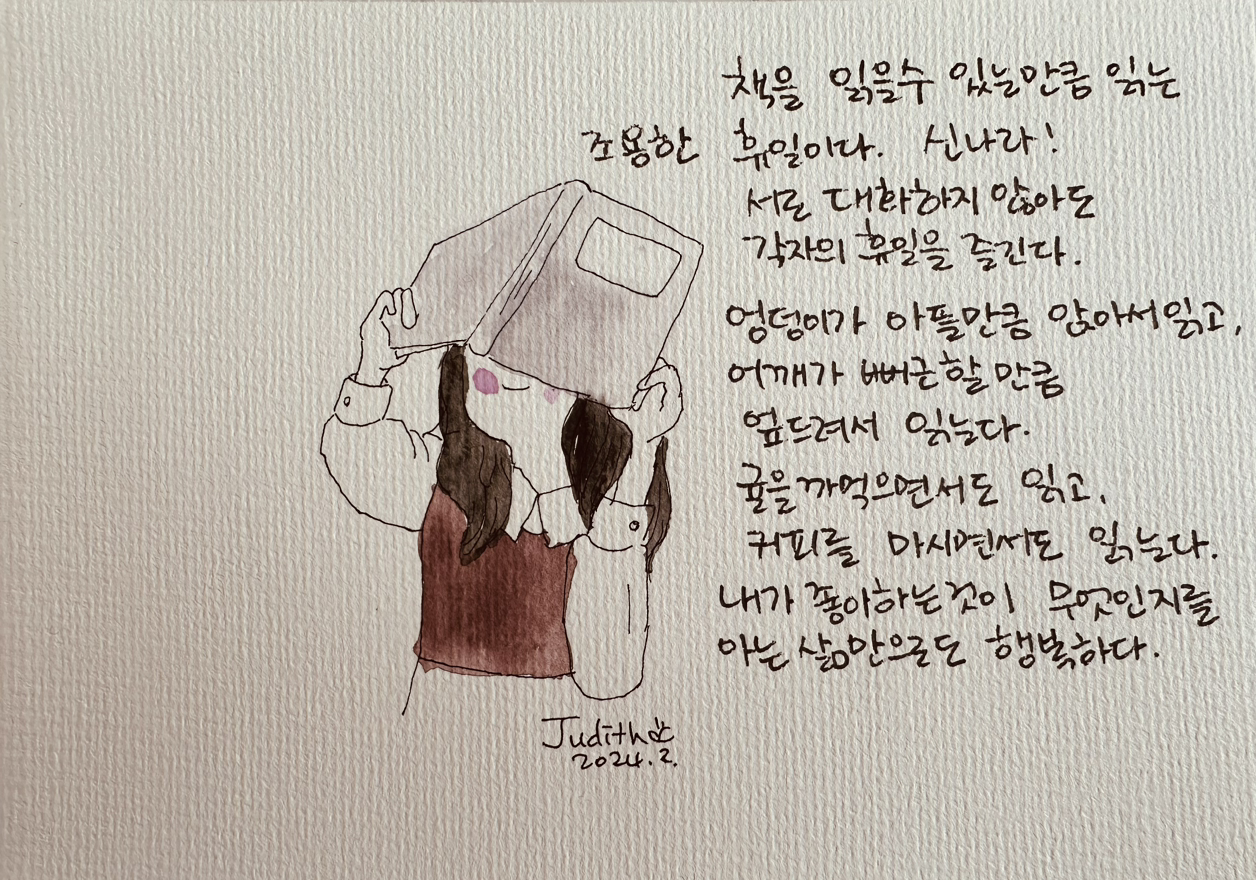 책을 읽을수 있는만큼 읽는
조용한 휴일이다. 신나라!
서로 대화하지 않아도
각자의 휴일을 즐긴다.
엉덩이가 아플만큼 앉아서읽고,
어깨가 뻐근할만큼
엎드려서 읽는다.
귤을까먹으면서도 읽고,
커피를 마시면서도 읽는다.
내가 좋아하는것이 무엇인지를
아는 삶만으로도 행복하다.
Judith
2024.2.